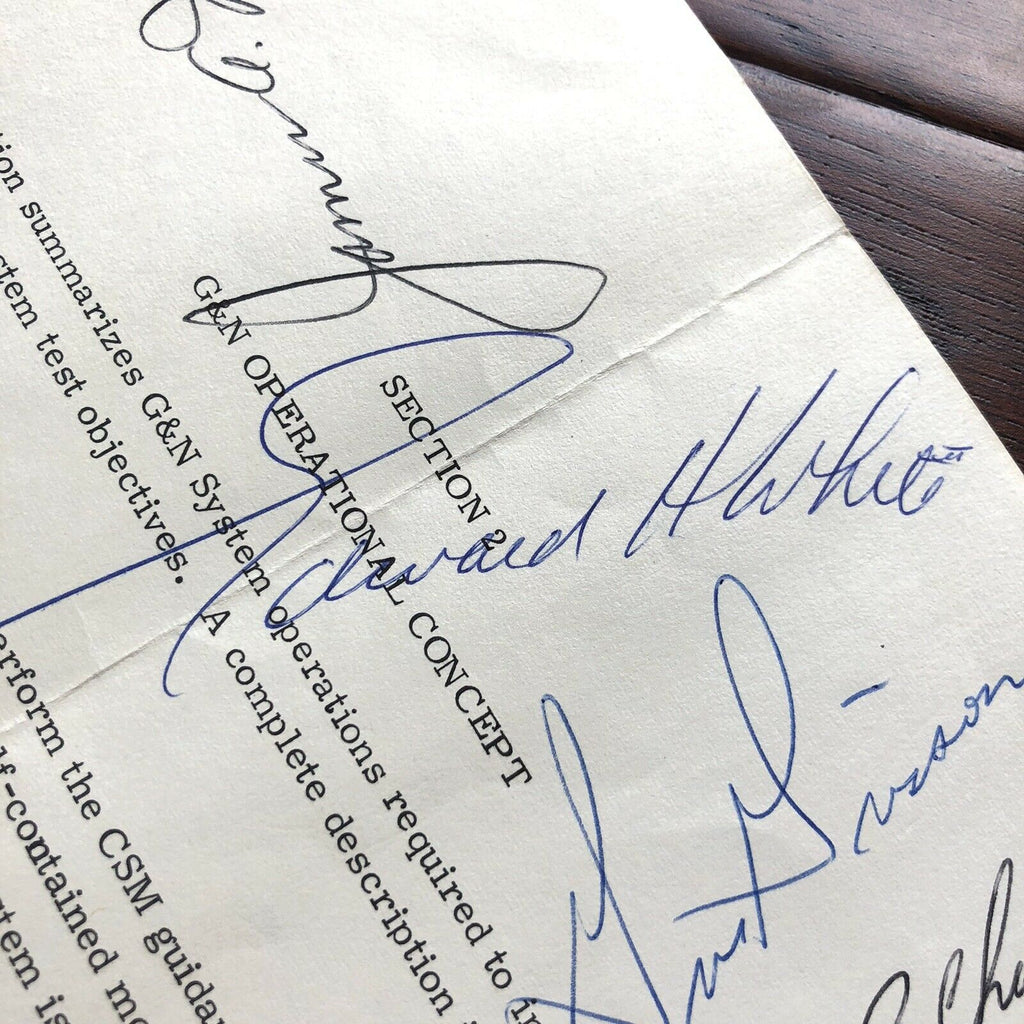 SECTION 2
G&N OPERATIONAL CONCEPT
tion summarizes G&N System operations required to in
stem test objectives. A complete description i
erform the CSM guida
lf-contained mo
stem is
Edward H White II
Gus Grissom